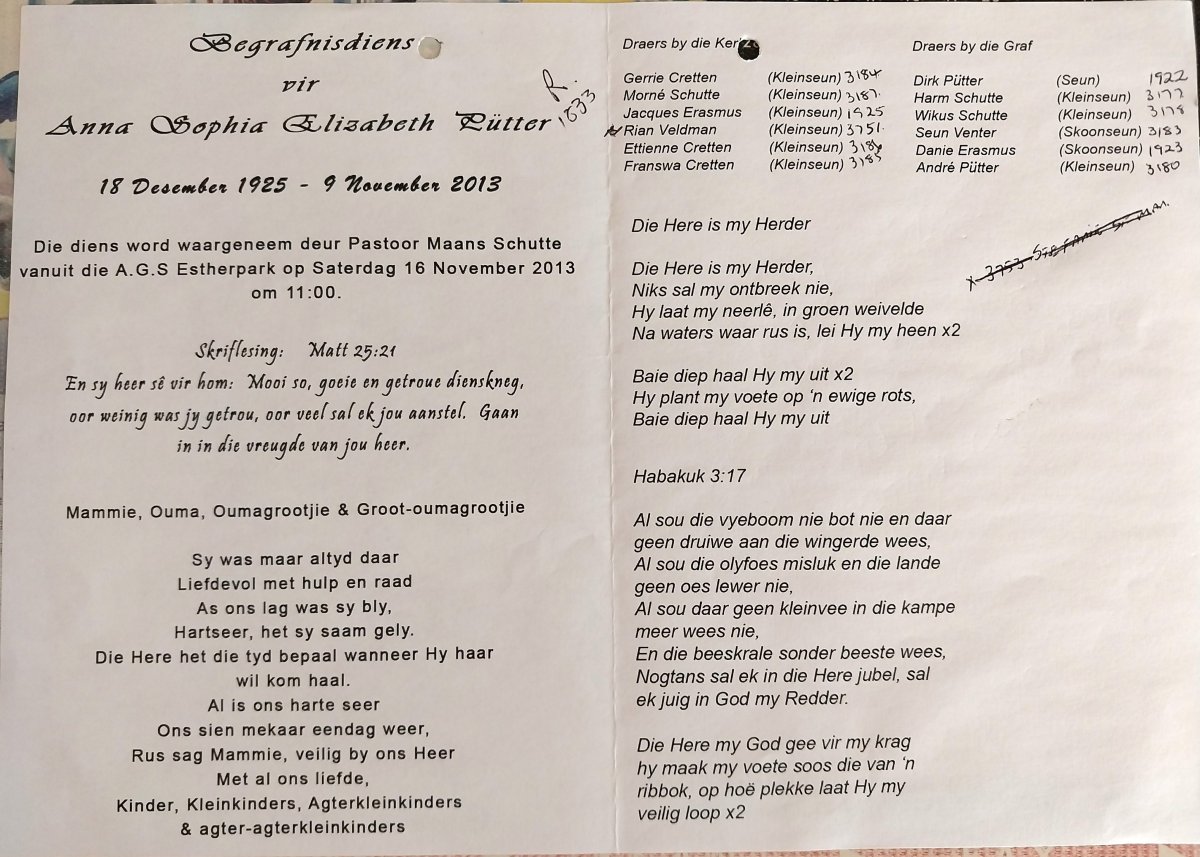 Begrafnisdiens
vir
Anna Sophia Elizabeth Pütter
R.
1833
18 Desember 1925 - 9 November 2013
Die diens word waargeneem deur Pastoor Maans Schutte
vanuit die A.G.S Estherpark op Saterdag 16 November 2013
om 11:00.
Skriflesing: Matt 25:21
En sy heer sê vir hom: Mooi so, goeie en getroue dienskneg,
oor weinig was jy getrou, oor veel sal ek jou aanstel. Gaan
in in die vreugde van jou heer.
Mammie, Ouma, Oumagrootjie & Groot-oumagrootjie
Sy was maar altyd daar
Liefdevol met hulp en raad
As ons lag was sy bly,
Hartseer, het sy saam gely.
Die Here het die tyd bepaal wanneer Hy haar
wil kom haal.
Al is ons harte seer
Ons sien mekaar eendag weer,
Rus sag Mammie, veilig by ons Heer
Met al ons liefde,
Kinder, Kleinkinders, Agterkleinkinders
& agter-agterkleinkinders
Draers by die
Gerrie Cretten (Kleinseun) 3184
Morné Schutte (Kleinseun) 3187.
Jacques Erasmus (Kleinseun) 1925
Rian Veldman (Kleinseun) 3751.
Ettienne Cretten (Kleinseun)
Franswa Cretten (Kleinseun) 3185
Draers by die Graf
Dirk Pütter (Seun) 1922
Harm Schutte (Kleinseun) 3177
Wikus Schutte (Kleinseun) 3178
Seun Venter (Skoonseun) 3183
Danie Erasmus (Skoonseun) 1923
André Pütter (Kleinseun) 3180
Die Here is my Herder
x 3753
Die Here is my Herder,
Niks sal my ontbreek nie,
Hy laat my neerlê, in groen weivelde
Na waters waar rus is, lei Hy my heen x2
Baie diep haal Hy my uit x2
Hy plant my voete op ‘n ewige rots,
Baie diep haal Hy my uit
Habakuk 3:17
Al sou die vyeboom nie bot nie en daar
geen druiwe aan die wingerde wees,
Al sou die olyfoes misluk en die lande
geen oes lewer nie,
Al sou daar geen kleinvee in die kampe
meer wees nie,
En die beeskrale sonder beeste wees,
Nogtans sal ek in die Here jubel, sal
ek juig in God my Redder.
Die Here my God gee vir my krag
hy maak my voete soos die van ‘n
ribbok, op hoë plekke laat Hy my
veilig loop x2